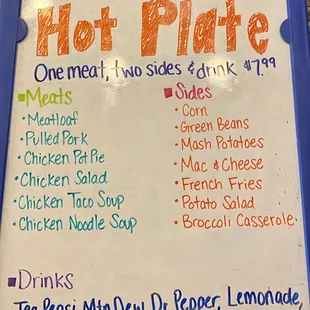 Hot Plate
One meat, two sides & drink $7.99
Meats
• Meatloaf
• Pulled Pork
• Chicken Pot Pie
• Chicken Salad
• Chicken Taco Soup
• Chicken Noodle Soup
Sides
• Corn
• Green Beans
• Mash Potatoes
• Mac & Cheese
• French Fries
• Potato Salad
• Broccoli Casserole
Drinks
Tea, Pepsi, Mtn Dew, Dr. Pepper, Lemonade,